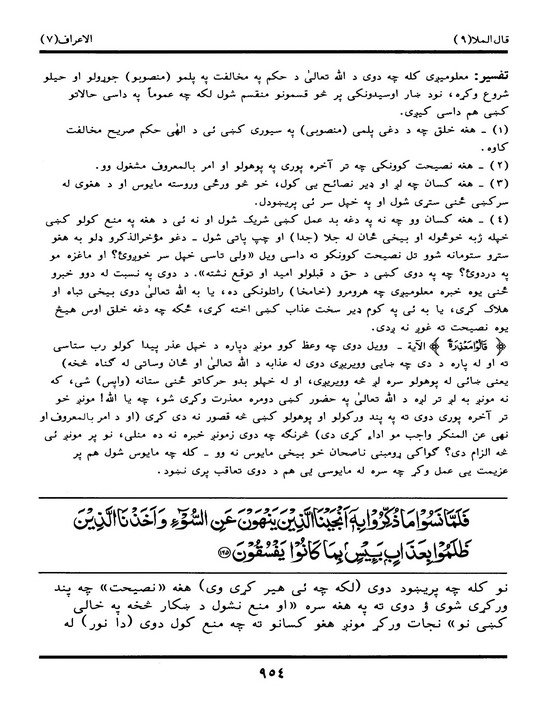 قال الملا(٩)
الاعراف(٧)
تفسیر: معلومیږی کله چه دوی د الله تعالیٰ د حکم په مخالفت په پلمو (منصوبو) جوړولو او حیلو
شروع وکړه، نود ښار اوسیدونکی پر څو قسمونو منقسم شول لکه چه عموماً په داسی حالاتو
کښی هم داسی کیږی.
(١) ـ هغه خلق چه د دغی پلمی (منصوبی) په سیوری کښی ئی د الهٰی حکم صریح مخالفت
کاوه.
(٢) ـ هغه نصیحت کوونکی چه تر آخره پوری په پوهولو او امر بالمعروف مشغول وو.
(٣) ـ هغه کسان چه لږ او ډیر نصائح یی کول، خو څو ورځی وروسته مایوس او د هغوی له
سرکښی ځنی ستړی شول او په خپل سر ئی پریښودل.
(٤) ـ هغه کسان وو چه نه په دغه بد عمل کښی شریک شول او نه ئی د هغه په منع کولو کښی
خپله ژبه خوځوله او بیخی ځان له جلا (جدا) او چپ پاتی شول ـ دغو مؤخرالذکرو ډلو به هغو
سترو ستومانه شوو تل نصیحت کوونکو ته داسی ویل «ولی تاسی خپل سر خوږوئ؟ او ماغزه مو
په دردوئ؟ چه په دوی کښی د حق د قبلولو امید او توقع نشته». د دوی په نسبت له دوو خبرو
ځنی یوه خبره معلومیږی چه هرومرو (خامخا) راتلونکی ده، یا به الله تعالیٰ دوی بیخی تباه او
هلاک کړی، یا به ئی په کوم ډیر سخت عذاب کښی اخته کړی، ځکه چه دغه خلق اوس هیڅ
یوه نصیحت ته غوږ نه ږدی.
﴿قَالُوۡا مَعۡذِرَةً﴾ الآیة ـ وویل دوی چه وعظ کوو مونږ دپاره د خپل عذر پیدا کولو رب ستاسی
ته او له پاره د دی چه ښایی وویریږی دوی له عذابه د الله تعالیٰ او ځان وساتی له ګناه څخه)
یعنی ښائی له پوهولو سره لږ څه وویریږی، او له خپلو بدو حرکاتو ځنی ستانه (واپس) شی، که
نه مونږ به لږ تر لږه د الله تعالیٰ په حضور کښی دومره معذرت وکړی شو، چه یا الله! مونږ خو
تر آخره پوری دوی ته په پند ورکولو او پوهولو کښی څه قصور نه دی کړی (او د امر بالمعروف او
نهی عن المنکر واجب مو اداء کړی دی) څرنګه چه دوی زمونږ خبره نه ده منلی، نو پر مونږ ئی
څه الزام دی؟ ګواکی ړومبنی ناصحان خو بیخی مایوس نه وو ـ کله چه مایوس شول هم پر
عزیمت یی عمل وکړ چه سره له مایوسی یی هم د دوی تعاقب پری نښود.
فَلَمَّا نَسُوۡا مَا ذُكِّرُوۡا بِهٖۤ اَنۡجَيۡنَا الَّذِيۡنَ يَنۡهَوۡنَ عَنِ السُّوۡٓءِ وَاَخَذۡنَا الَّذِيۡنَ
ظَلَمُوۡا بِعَذَابٍۢ بَـِٔيۡسٍۢ بِمَا كَانُوۡا يَفۡسُقُوۡنَ ﴿١٦٥﴾
نو کله چه پریښود دوی (لکه چه ئی هیر کړی وی) هغه «نصیحت» چه پند
ورکړی شوی ؤ دوی ته په هغه سره «او منع نشول د ښکار څخه په خالی
کښی نو» نجات ورکړ مونږ هغو کسانو ته چه منع کول دوی (دا نور) له
٩٥٤